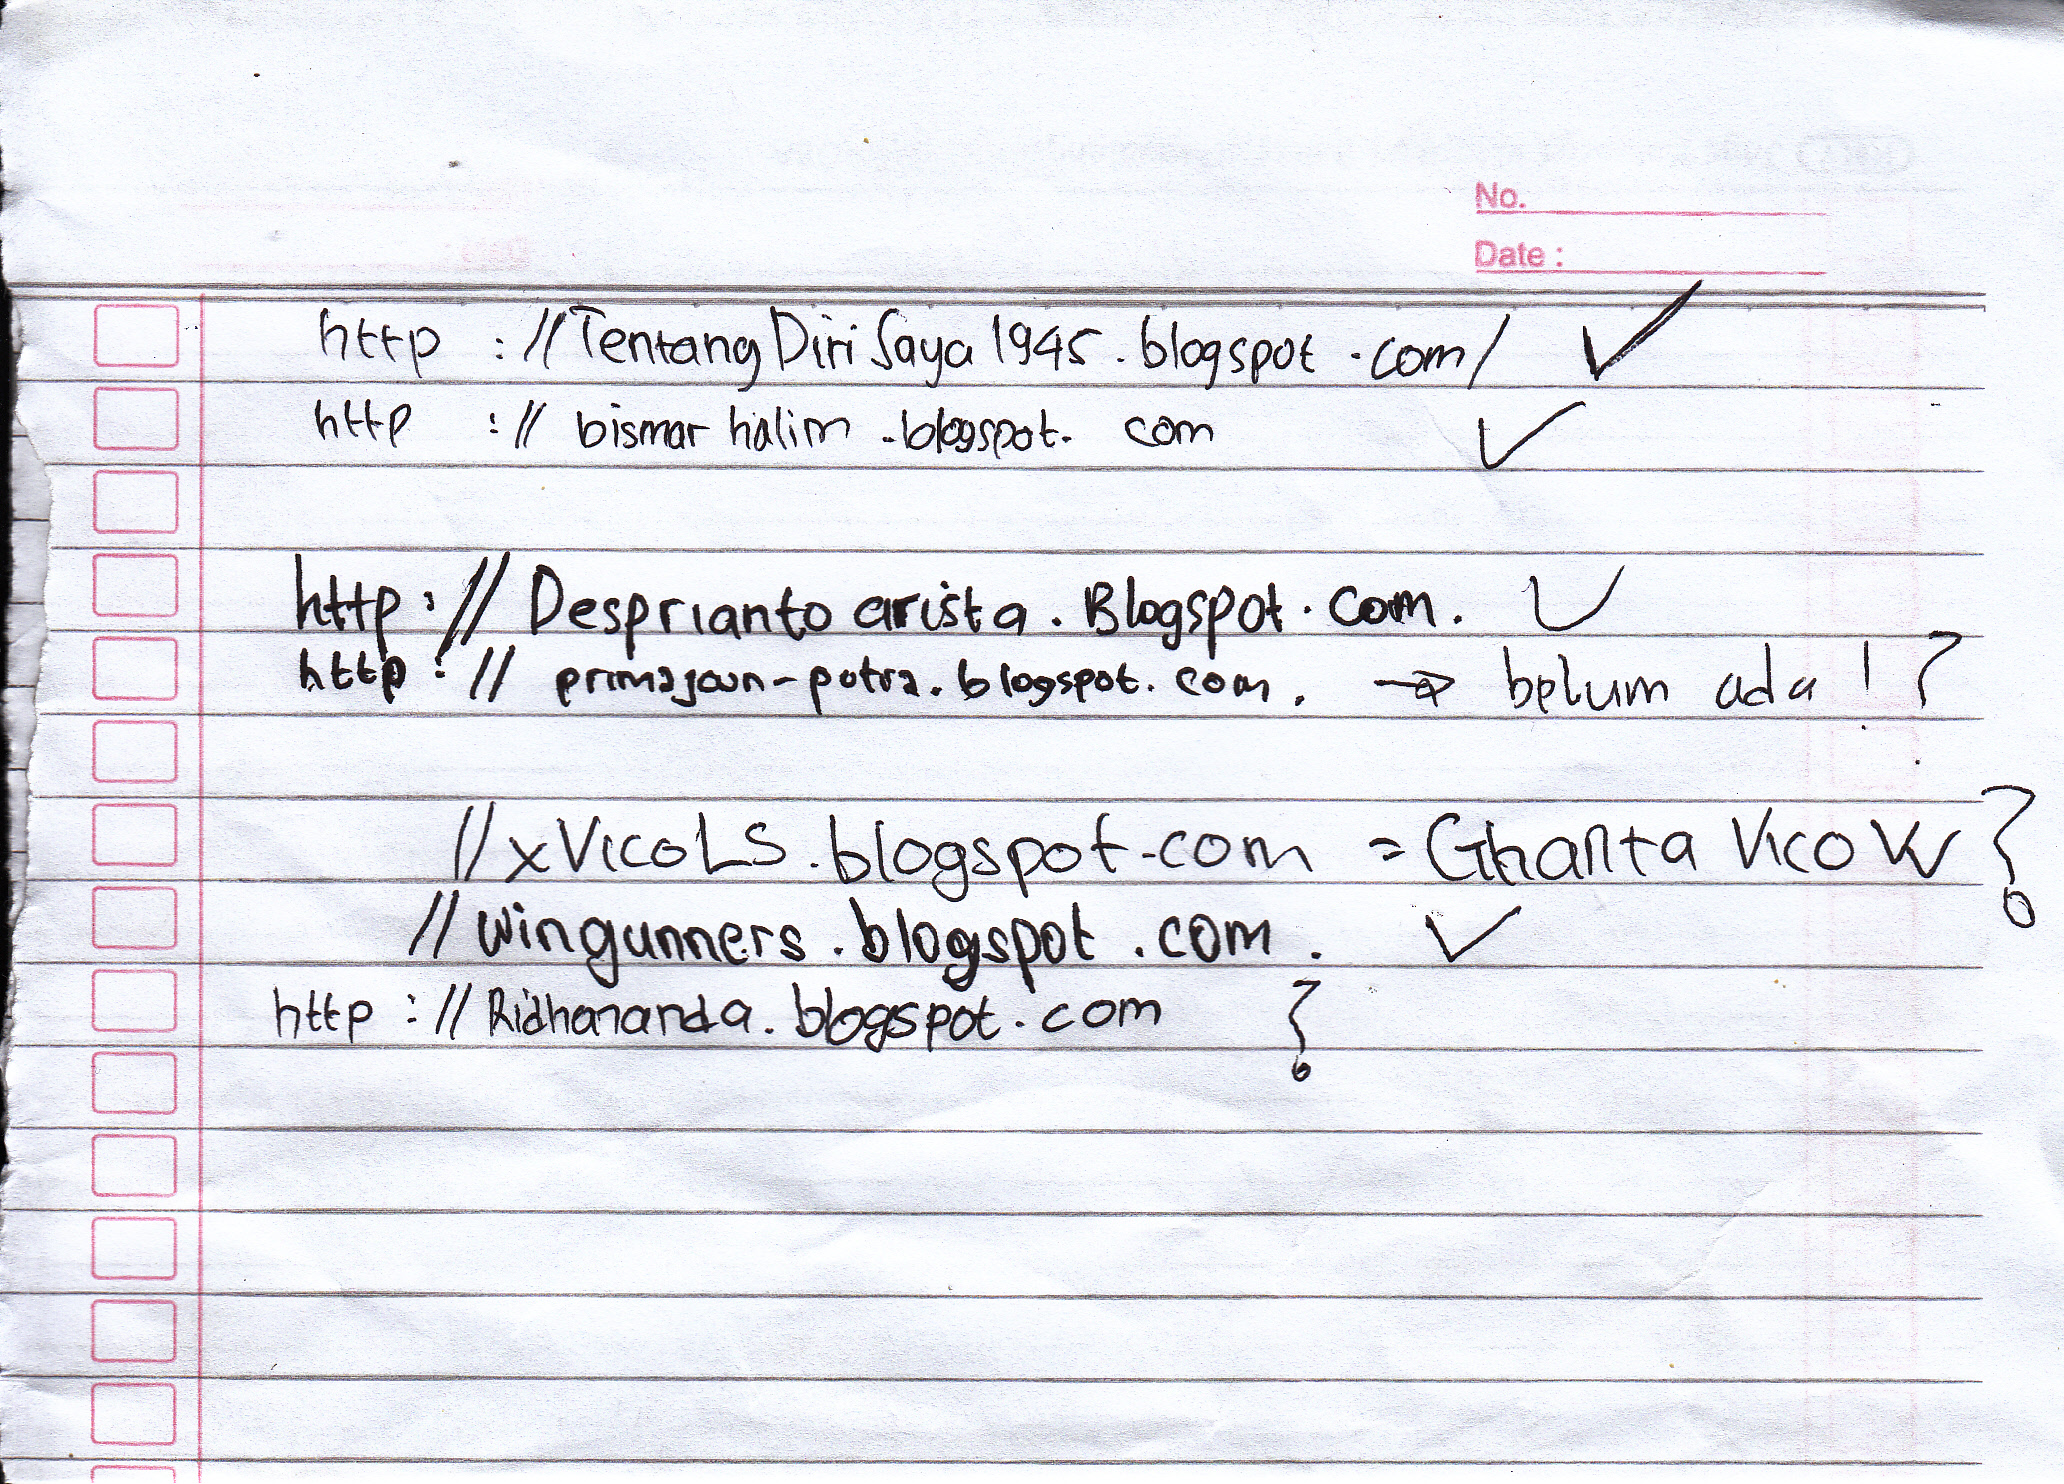 No.
Date :
http ://TentangDiriSaya1945.blogspot.com/ ✓
http :// bismarhalim.blogspot. com ✓
http:// Desprianto arista.Blogspot.com. ✓
http:// primajaun-putra.blogspot.com. → belum ada ! ?
//xVicoLS.blogspot.com = Ghanta Vico W ?
//wingunners.blogspot.com. ✓
http ://Ridhananda.blogspot.com ?